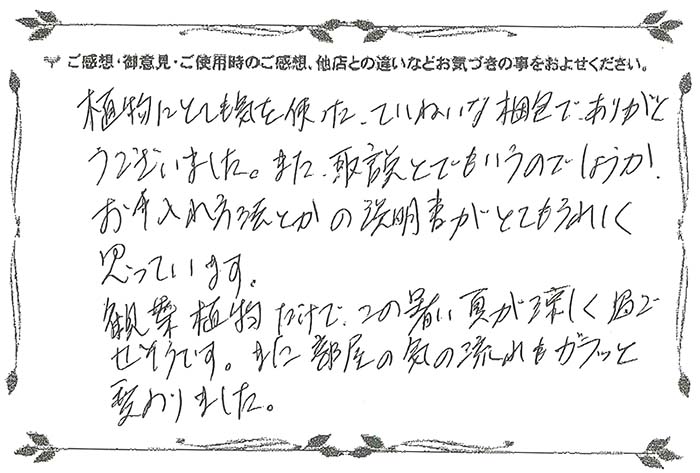 ご感想・御意見・ご使用時のご感想、他店との違いなどお気づきの事をおよせください。
植物にとても気を使った、ていねいな梱包で、ありがと
うございました。また、取説とでもいうのでしょうか、
お手入れ方法とかの説明書がとてもうれしく
思っています。
観葉植物だけで、この暑い夏が涼しく過ご
せそうです。まに部屋の気の流れもガラッと
変わりました。